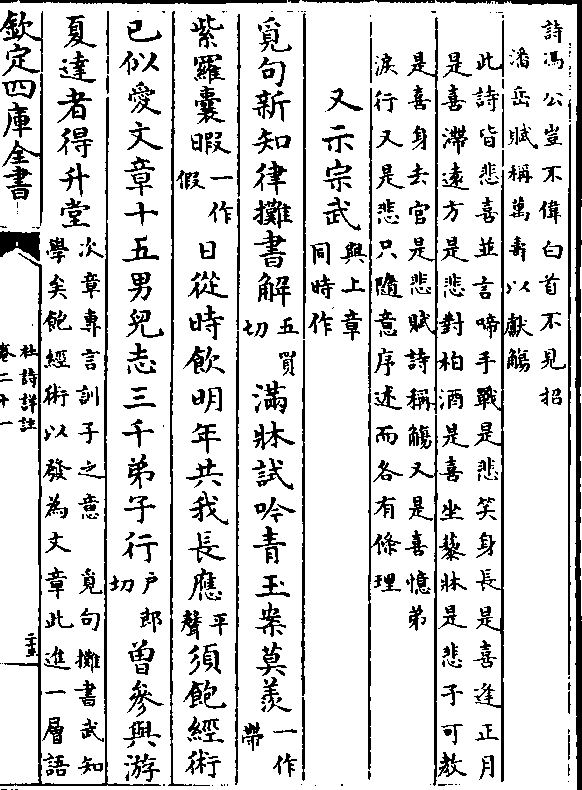 詩馮公豈不偉白首不見招
潘岳賦稱萬壽以獻觴
此詩皆悲喜並言啼手戰是悲笑身長是喜逢正月
是喜滯遠方是悲對柏酒是喜坐藜牀是悲子可教
是喜身去官是悲賦詩稱觴又是喜憶弟
淚行又是悲只隨意序述而各有條理
又示宗武與上章同時作
覓句新知律攤書解五買切滿牀試吟青玉案莫羨一作帶
紫羅囊暇一作假日從時飲明年共我長應平聲須飽經術
已似愛文章十五男兒志三千弟子行戶郎切曾參與游
夏達者得升堂次章專言訓子之意 覓句攤書武知
學矣飽經術以發為文章此進一層語
欽定四庫全書
杜詩詳註
卷二十一
二十五